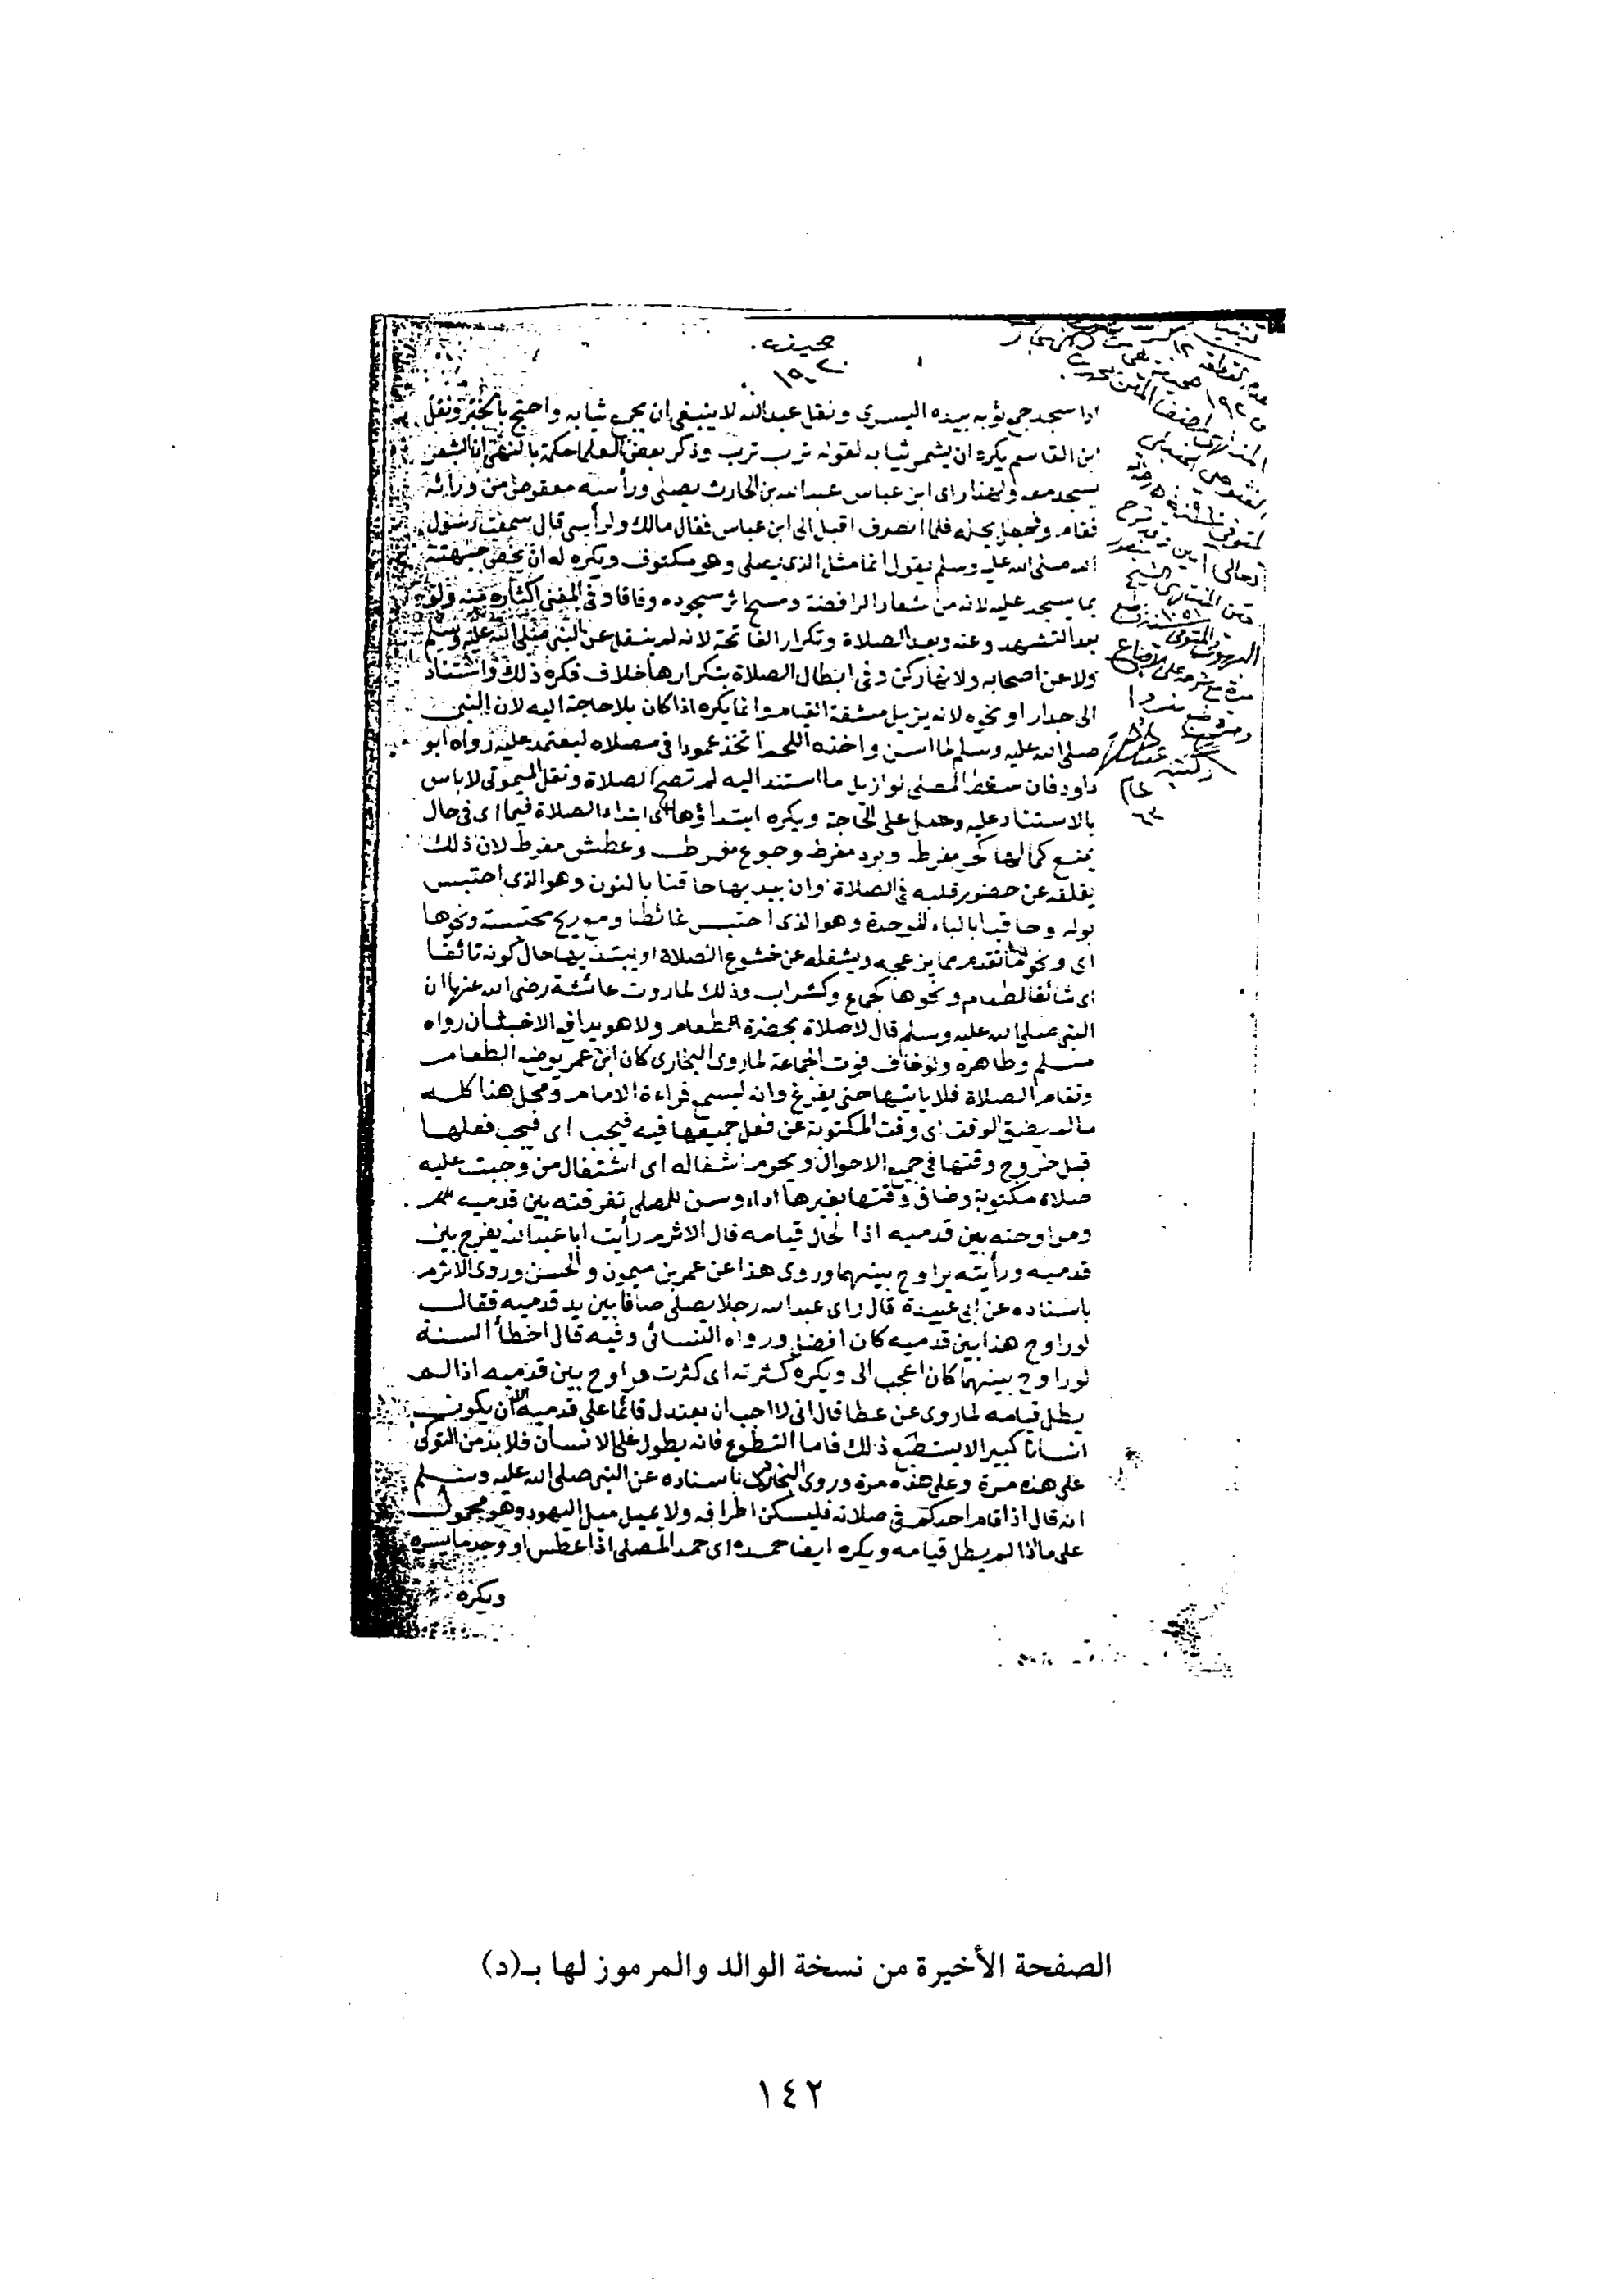 صحيفة
١٩٠٢
اذا سجد جمع ثوبه بيده اليسرى ونقل عبد الله لا ينبغى ان يجمع ثيابه واحتج بالخبر ونقل
ابن القاسم يكره ان يشمر ثيابه لقوله ترب ترب وذكر بعض العلما حكمة بالنهى ان الشعر
يسجد معه ولهذا راى ابن عباس عبد الله بن الحارث يصلى ورأسه معقوص من ورائه
فقام وجعل يحله فلما انصرف اقبل الى ابن عباس فقال مالك ولرأسى قال سمعت رسول
الله صلى الله عليه وسلم يقول انما مثل الذى يصلى وهو مكتوف ويكره له ان يخص جبهته
بما يسجد عليه لانه من شعار الرافضة ومسح اثر سجوده وفاقا وفى المغنى اكثاره منه ولو
بعد التشهد وعنه وبعد الصلاة وتكرار الفاتحة لانه لم ينقل عن النبى صلى الله عليه وسلم
ولا عن اصحابه ولانها ركن وفى ابطال الصلاة بتكرارها خلاف فكره ذلك واستناد
الى جدار او نحوه لانه يزيل مشقة القيام وانما يكره اذا كان بلا حاجة اليه لان النبى
صلى الله عليه وسلم لما اسن واخذه اللحم اتخذ عمودا فى مصلاه ليعتمد عليه رواه ابو
داود فان سقط المصلى لو ازيل ما استند اليه لم تصح الصلاة ونقل الميمونى لا باس
بالاستناد عليه وحمل على الحاجة ويكره ابتداؤها اى ابتداء الصلاة فيما اى فى حال
يمنع كمالها كحر مفرط وبرد مفرط وجوع مفرط وعطش مفرط لان ذلك
يقلقه عن حضور قلبه فى الصلاة وان يبديها حاقنا بالنون وهو الذى احتبس
بوله وحاقبا بالباء الموحدة وهو الذى احتبس غائطا ومع ريح محتبسة ونحوها
اى ونحو ما تقدم مما يزعجه ويشغله عن خشوع الصلاة او يبتديها حال كونه تائقا
اى شائقا لطعام ونحوها كجماع وكشراب وذلك لما روت عائشة رضى الله عنها ان
النبى صلى الله عليه وسلم قال لا صلاة بحضرة الطعام ولا هو يدافع الاخبثان رواه
مسلم وظاهره ولو خاف فوت الجماعة لما روى البخارى كان ابن عمر يوضع الطعام
وتقام الصلاة فلا ياتيها حتى يفرغ وانه ليسمع قراءة الامام ومحل هذا كله
مالم يضق الوقت اى وقت المكتوبة عن فعل جميعها فيه فيجب اى فيجب فعلها
قبل خروج وقتها فى جميع الاحوال ويحرم اشغاله اى اشتغال من وجبت عليه
صلاة مكتوبة وضاق وقتها بغيرها اداء وسن للمصلى تفرقته بين قدميه
ومراوحته بين قدميه اذا قيامه قال الاثرم رأيت ابا عبد الله يفرج بين
قدميه ورأيته يراوح بينهما وروى هذا عن عمر بن ميمون والحسن وروى الاثرم
باسناده عن ابى عبيدة قال راى عبد الله رجلا يصلى صافا بين قدميه فقال
لو راوح هذا بين قدميه كان افضل ورواه النسائى وفيه قال اخطأ السنة
لو راوح بينهما كان اعجب الى ويكره كثرته اى كثرت مراوح بين قدميه اذا لم
يطل قيامه لما روى عن عطا قال انى لا احب ان يعتدل قائما على قدميه الا ان يكون
انسانا كبيرا لا يستطيع ذلك فاما التطوع فانه يطول على الانسان فلا بد من التوكى
على هذه مرة وعلى هذه مرة وروى البخارى باسناده عن النبى صلى الله عليه وسلم
انه قال اذا قام احدكم فى صلاته فليسكن اطرافه ولا يميل ميل اليهود وهو محمول
على ما اذا لم يطل قيامه ويكره ايضا حمده اى حمد المصلى اذا عطس او وجد ما يسره
ويكره
الصفحة الأخيرة من نسخة الوالد والمرموز لها بـ(د)
١٤٢